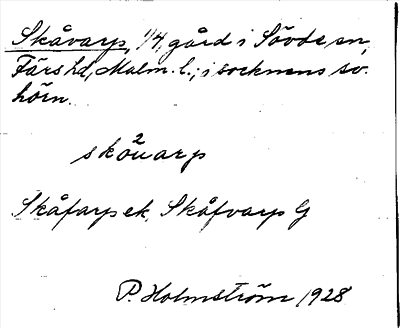 Skåvarp, 1/4, gård i Sövde sn,
Färs hd, Malm. l.; i socknens sv.
hörn.
skö²varp
Skåfarp ek, Skåfvarp G
P. Holmström 1928